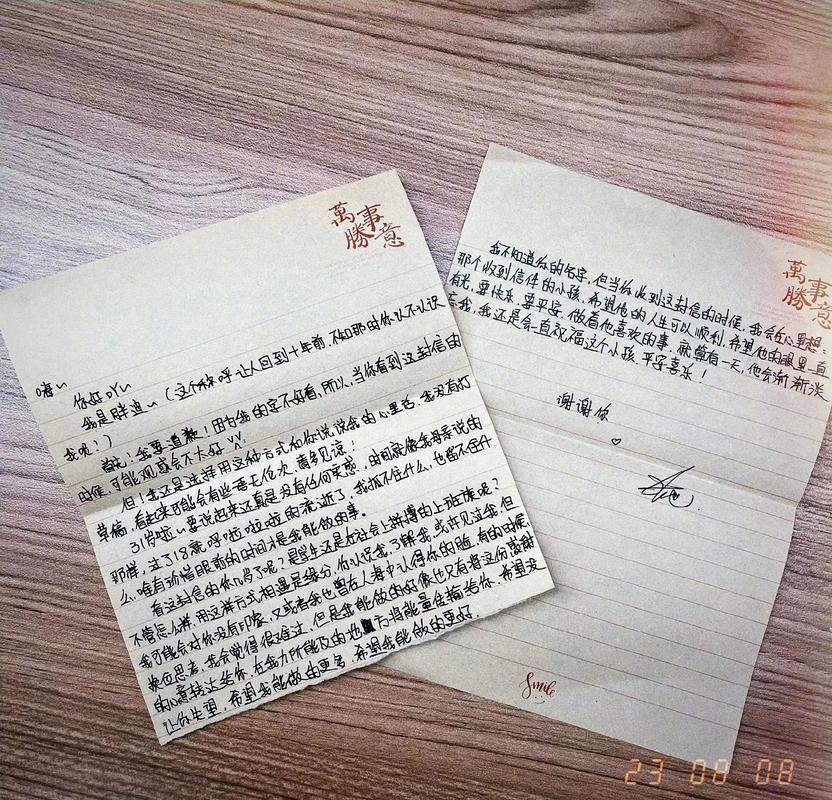 萬事
勝意
嗨～
你好吖～
我是胖迪～(这个称呼让人回到十年前,不知那时你认不认识
我呢?)
首先!我要道歉!因为我的字不好看,所以,当你看到这封信的
时候,可能观感会不大好
但!我还是选择用这种方式和你说说我的心里话,我没有打
草稿,看起来可能会有些语无伦次,请多见谅!
31岁啦～要说起来还真是没有任何实感,时间就像我母亲说的
那样,过了18就呼啦啦啦的流逝了,我抓不住什么,也留不住什
么,唯有珍惜眼前的时间才是我能做的事。
看这封信的你几岁了呢?是学生还是在社会上拼搏的上班族呢?
不管怎么样,用这样方式相遇是缘分,你认识我,了解我,或许见过我,但
我可能会对你没有印象,又或者我也曾在人海中认得你的脸,有的时候
换位思考,我会觉得很难过,但是我能做的好像也只有将这份感谢
的心意转达给你,在我力所能及的地方将能量传输给你,希望没
让你失望,希望我能做的更多,希望我能做的更好。
萬事
勝意
我不知道你的名字,但当你收到这封信的时候,我会在心里想:
那个收到信件的小孩,希望他的人生可以顺利,希望他的眼里一直
有光,要快乐,要平安,做着他喜欢的事,就算有一天,他会渐渐淡
忘我,我还是会一直祝福这个小孩,平安喜乐!
谢谢你
♡
Smile
23 08 08